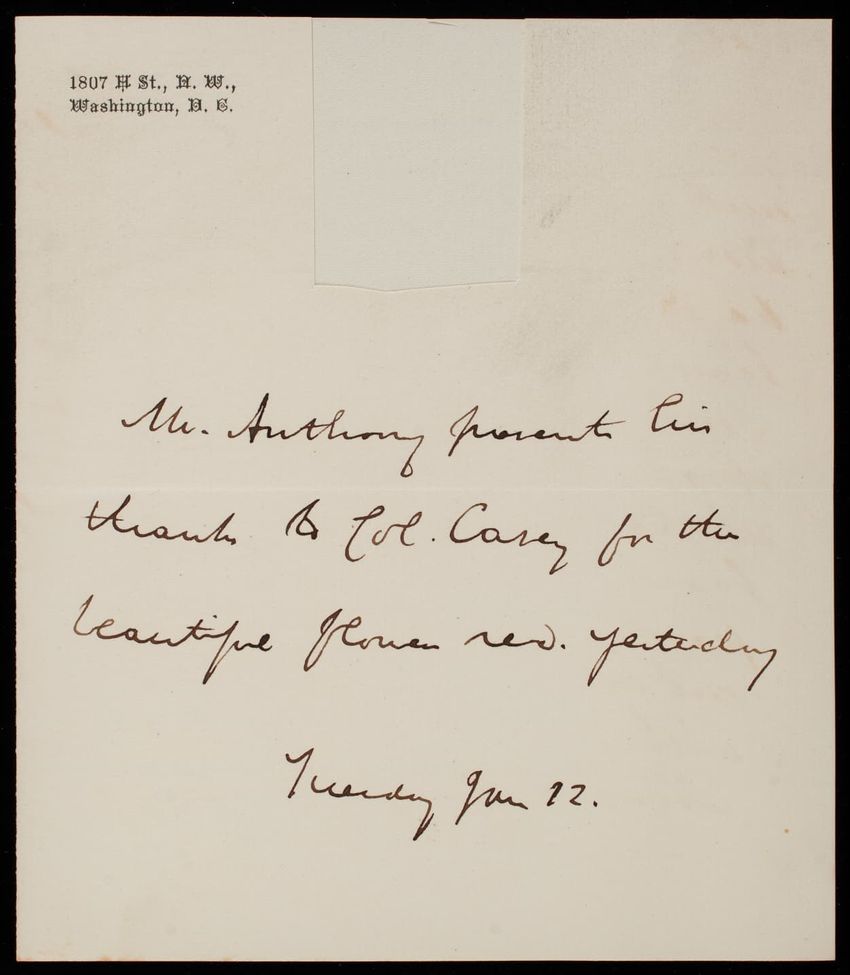 1807 H St., N. W.,
Washington, D. C.
Mr. Anthony presents his
thanks to Col. Casey for the
beautiful flowers recd. yesterday
Tuesday Jan 12.